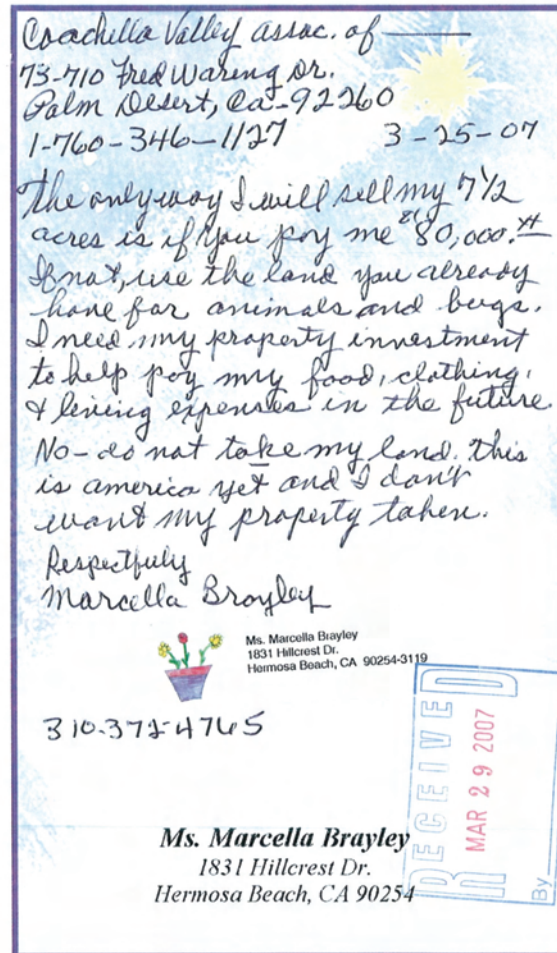 Coachella Valley assoc. of ———
73-710 Fred Waring Dr.
Palm Desert, Ca-92260
1-760-346-1127 3-25-07
The only way I will sell my 7½
acres is if you pay me $80,000.
If not, use the land you already
have for animals and bugs.
I need my property investment
to help pay my food, clothing,
& living expenses in the future.
No- do not take my land. This
is america yet and I don't
want my property taken.
Respectfuly
Marcella Brayley
Ms. Marcella Brayley
1831 Hillcrest Dr.
Hermosa Beach, CA 90254-3119
310-372-4765
RECEIVED
MAR 29 2007
By
Ms. Marcella Brayley
1831 Hillcrest Dr.
Hermosa Beach, CA 90254